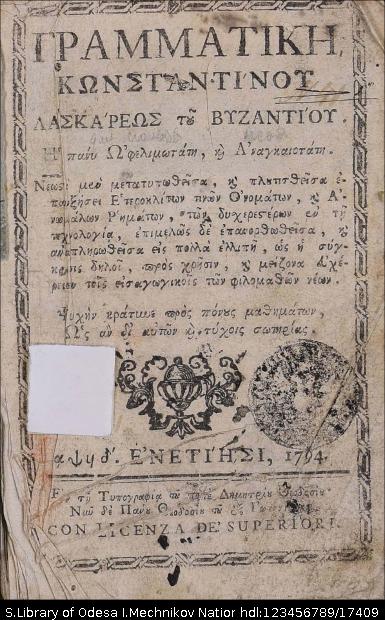 ΓΡΑΜΜΑΤΙΚΗ
ΚΩΝΣΤΑΝΤΙ´ΝΟΥ
ΛΑΣΚΑ´ΡΕΩΣ τȣ͂ ΒΥΖΑΝΤΙ´ΟΥ.
Ἡ πάνυ Ὠφελιμωτάτη, ϗ Ἀναγκαιοτάτη.
Νεωςὶ μὲν μετατυπωθεῖσα, ϗ πλουτισθεῖσα ἐ-
παυξήσει Ἑτεροκλίτων τινῶν Ὀνομάτων, ϗ Ἀ-
νωμάλων Ῥημάτων, τῶν δυχερεςέρων ἐν τῇ
τεχνολογίᾳ, ἐπιμελῶς δὲ ἐπανορθωθεῖσα, ϗ
ἀναπληρωθεῖσα εἰς πολλὰ ἐλλιπῆ, ὡς ἡ σύγ-
κρισις δηλοῖ, πρὸς χρῆσιν, ϗ μείζονα εὐχέ-
ρειαν τοῖς εἰσαγωγικοῖς τῶν φιλομαθῶν νέων.
Ψυχὴν κράτυνε πρὸς πόνȣς μαθημάτων,
Ὡς ἂν δι' αὐτῶν ϗ τύχοις σωτηρίας.
αψϟδ´. ἘΝΕΤΙ´ΗΣΙ, 1794.
τῇ Τυπογραφίᾳ τȣ͂ ποτὲ Δημητρίȣ Θεοδοσίȣ
Νῦν δὲ Πάνȣ Θεοδοσίȣ τȣ͂ ἐξ Ἰωαννίνων.
CON LICENZA DE' SUPERIORI.
S.Library of Odesa I.Mechnikov Nation hdl:123456789/17409